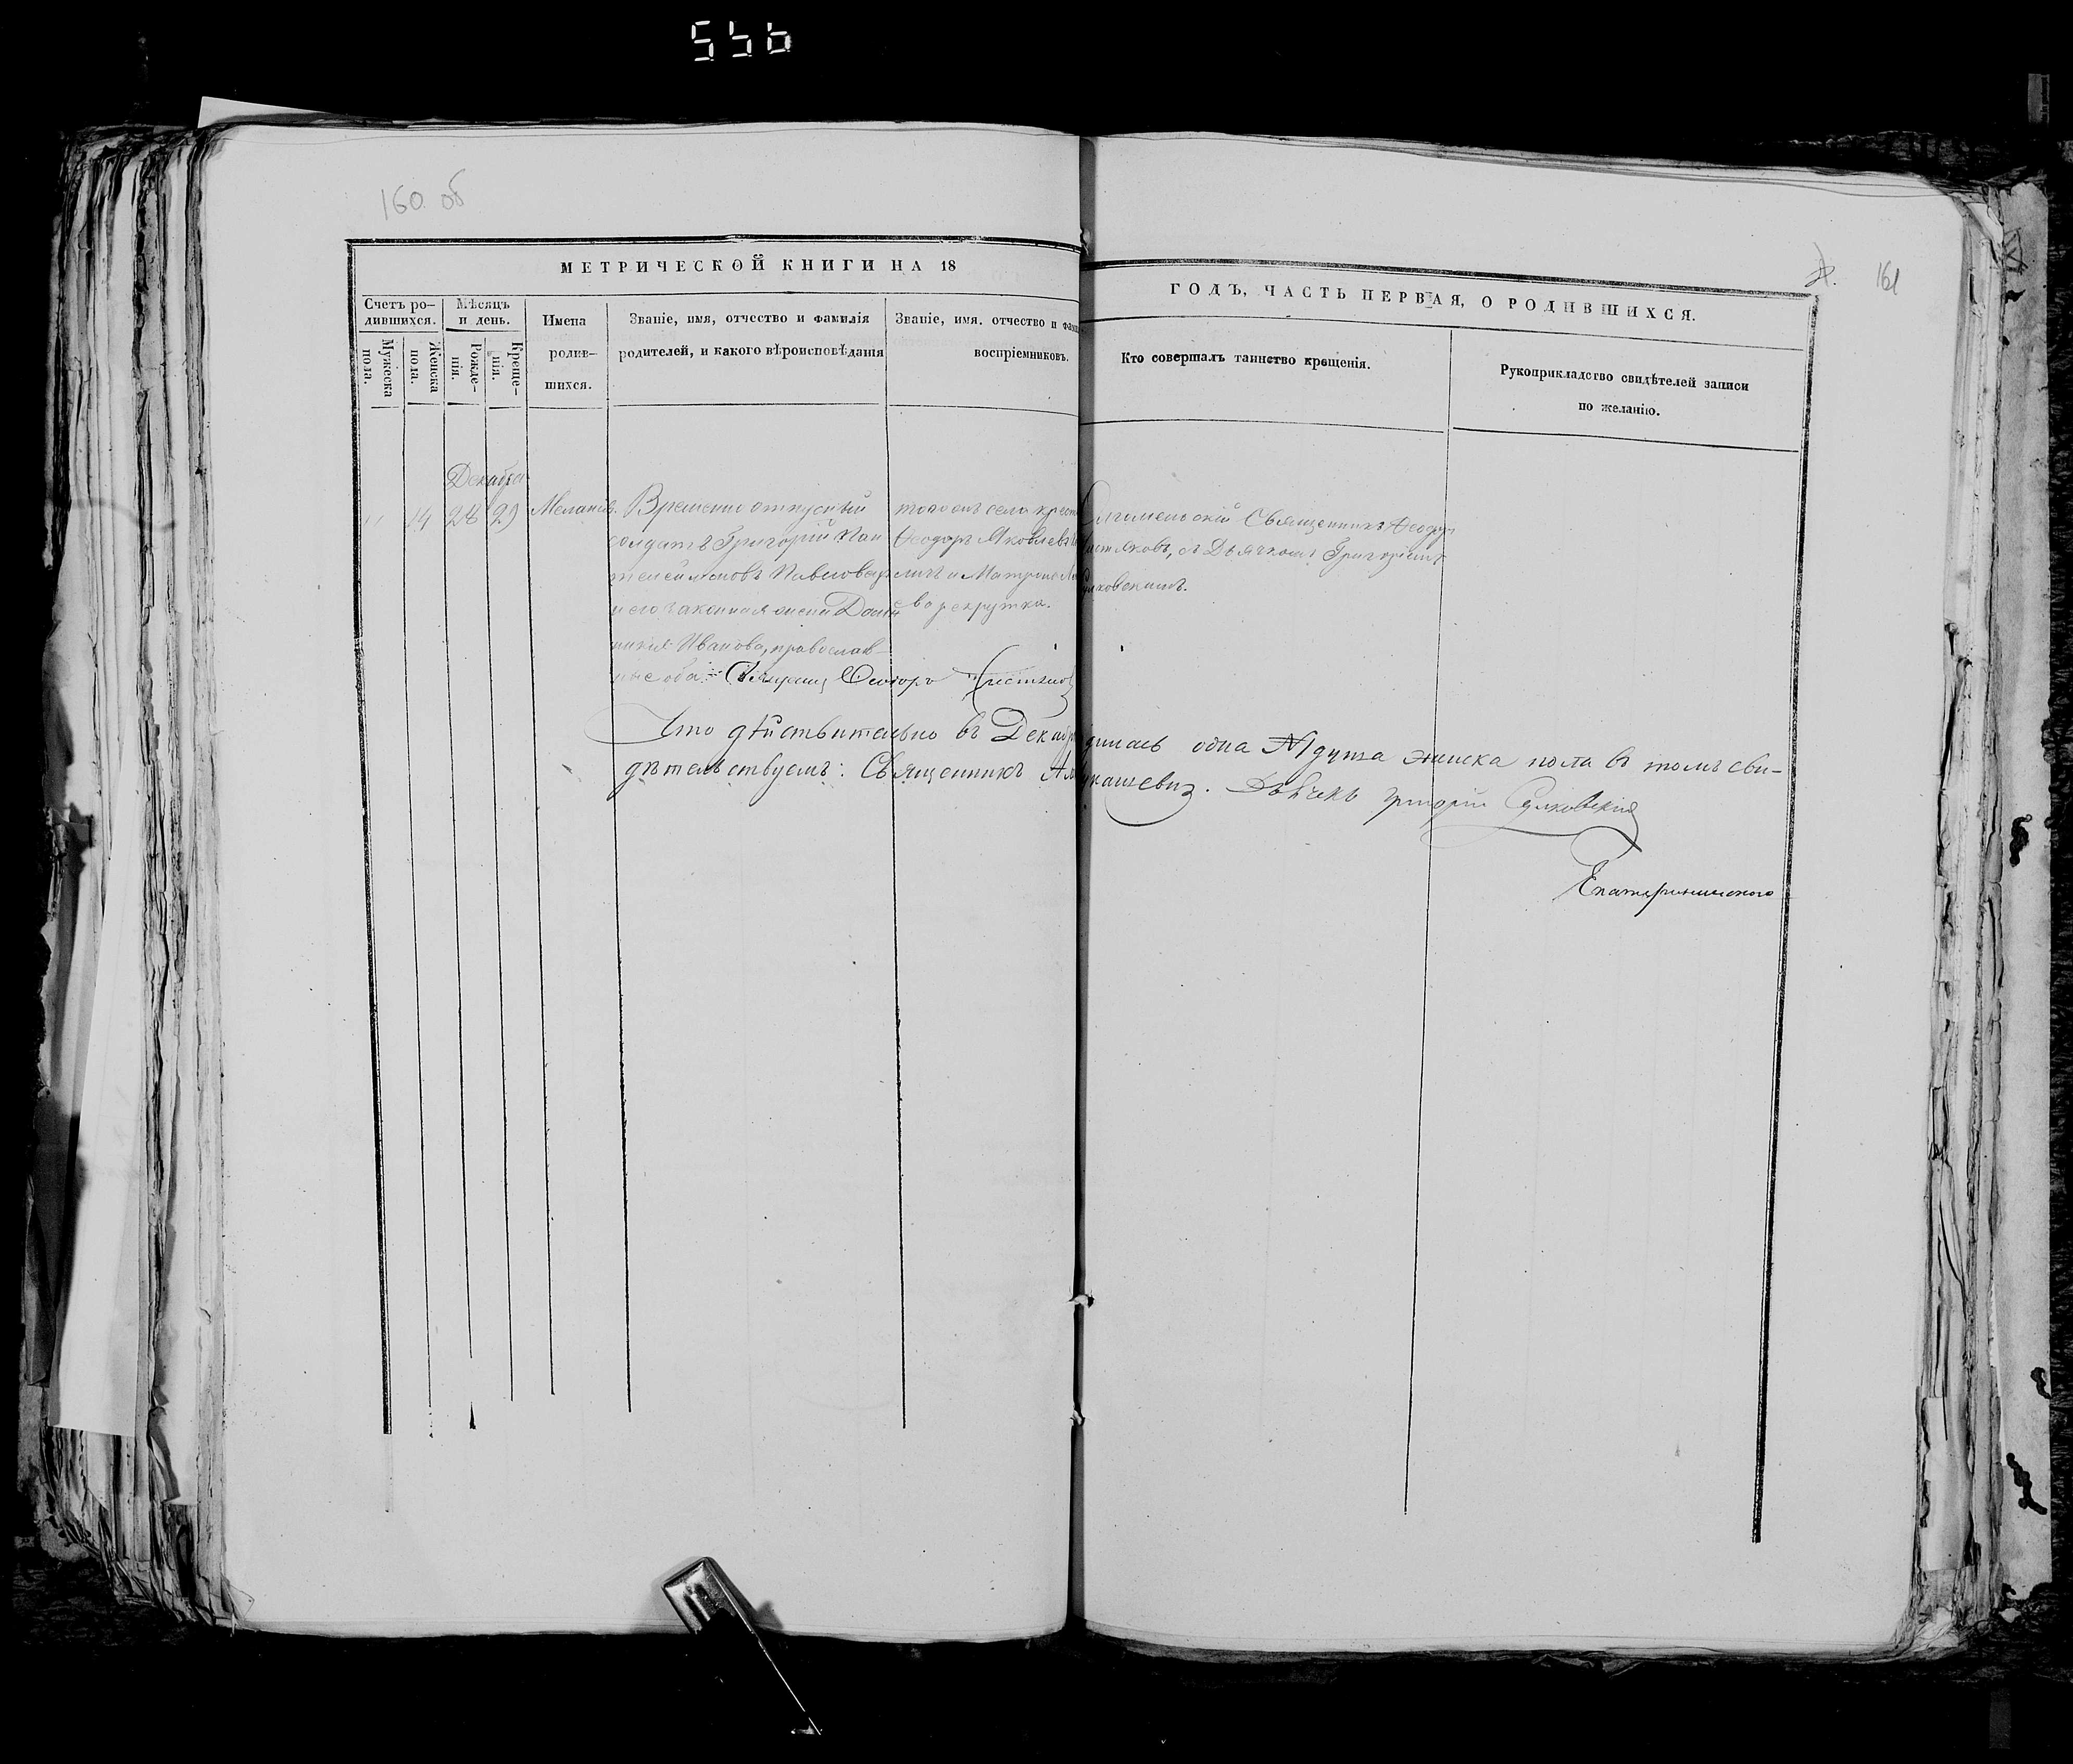 556
160 об
161
МЕТРИЧЕСКОЙ КНИГИ НА 18
ГОДЪ, ЧАСТЬ ПЕРВАЯ, О РОДИВШИХСЯ.
Счетъ ро-
дившихся.
Мужеска
пола.
Женска
пола.
Мѣсяцъ
и день.
Рожде-
нія.
Креще-
нія.
Имена
родив-
шихся.
Званіе, имя, отчество и фамилія
родителей, и какого вѣроисповѣданія
Званіе, имя. отчество и фами
воспріемниковъ.
Кто совершалъ таинство крещенія.
Рукоприкладство свидѣтелей записи
по желанію.
Декабря
14 28 29
Временно отпускный
солдатъ Григорій Пан
телеймоновъ Павловъ
и его законная жена Дом
никія Иванова, православ-
ные оба.
того же села крест
Ѳеодоръ Яковлевъ
и Матрона
рекрутка.
Священникъ Ѳеодоръ
истяковъ, съ Дьячкомъ Григоріемъ
улковскимъ.
Что дѣйствительно въ Декабр
дилась одна душа женска пола въ томъ сви-
дѣтельствуемъ: Священникъ
укашевич. Дьячекъ Григорій Сулковскій
Екатерининского